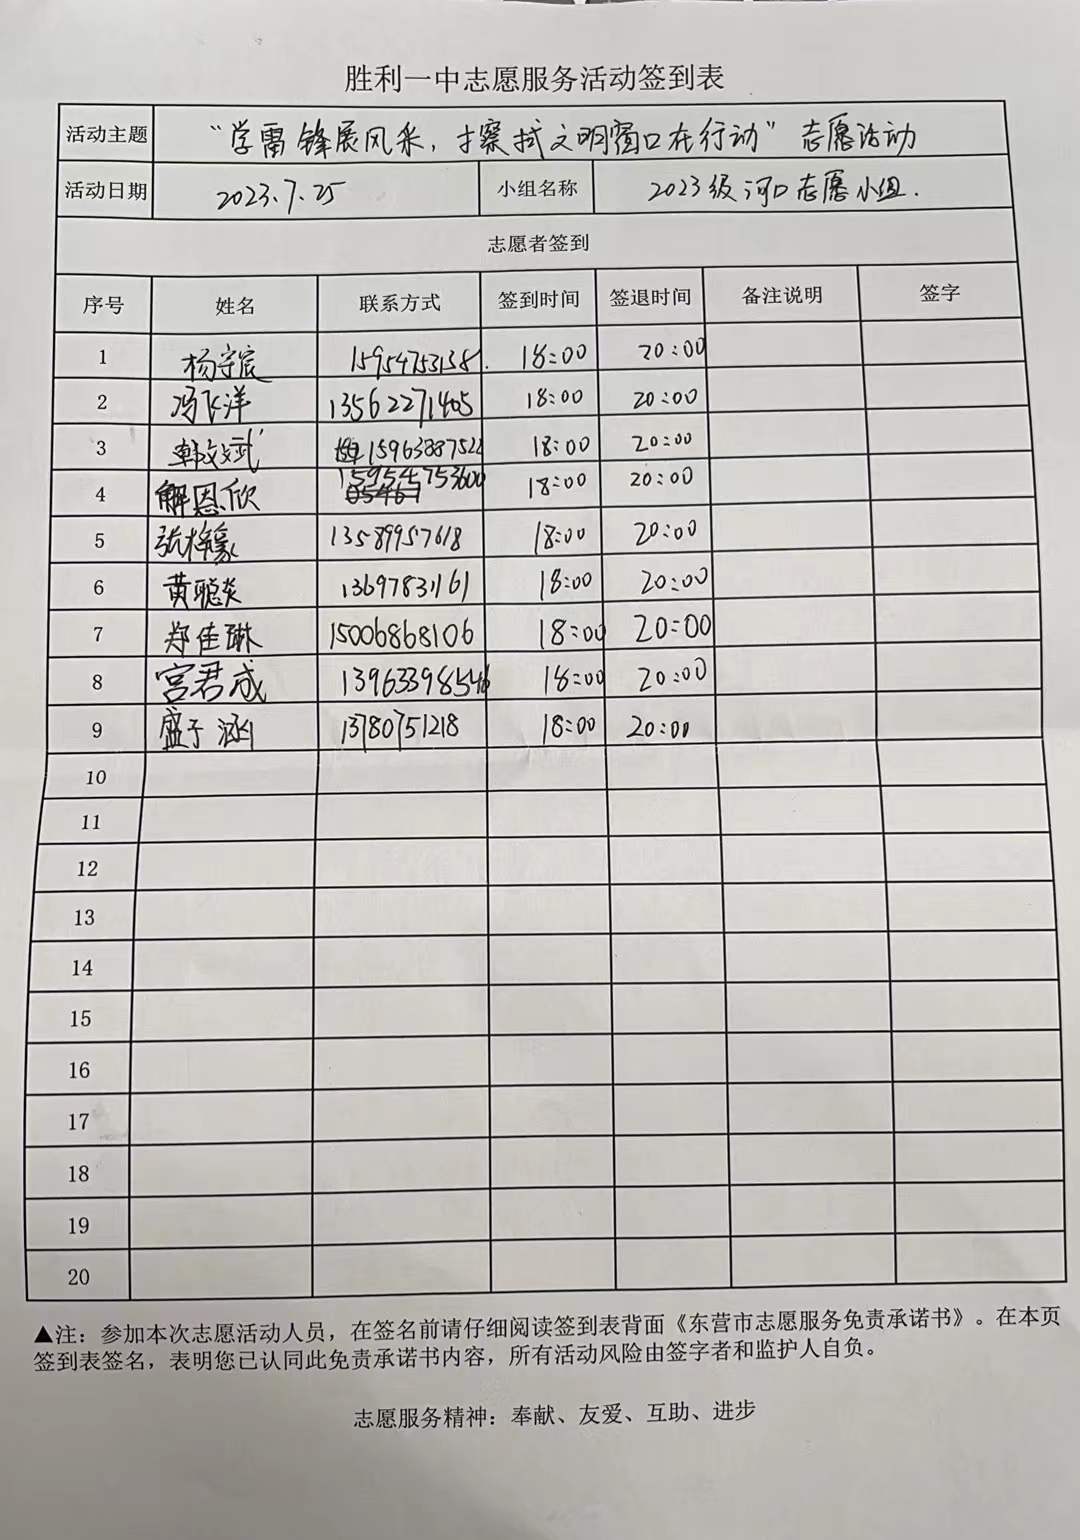 胜利一中志愿服务活动签到表
活动主题 “学雷锋展风采，才察拭文明窗口在行动” 志愿活动
活动日期 2023.7.25 小组名称 2023级河口志愿小组.
志愿者签到
序号 姓名 联系方式 签到时间 签退时间 备注说明 签字
1 杨宇宸 15954753138. 18:00 20:00
2 冯飞洋 13562271405 18:00 20:00
3 韩文斌 15963887522 18:00 20:00
4 解恩欣 15954753600 18:00 20:00
5 张梓豪 13589957618 18:00 20:00
6 黄聪炎 13697831161 18:00 20:00
7 郑佳琳 15006868106 18:00 20:00
8 宫君成 13963398546 18:00 20:00
9 盛于涵 13780751218 18:00 20:00
10
11
12
13
14
15
16
17
18
19
20
▲注：参加本次志愿活动人员，在签名前请仔细阅读签到表背面《东营市志愿服务免责承诺书》。在本页
签到表签名，表明您已认同此免责承诺书内容，所有活动风险由签字者和监护人自负。
志愿服务精神：奉献、友爱、互助、进步